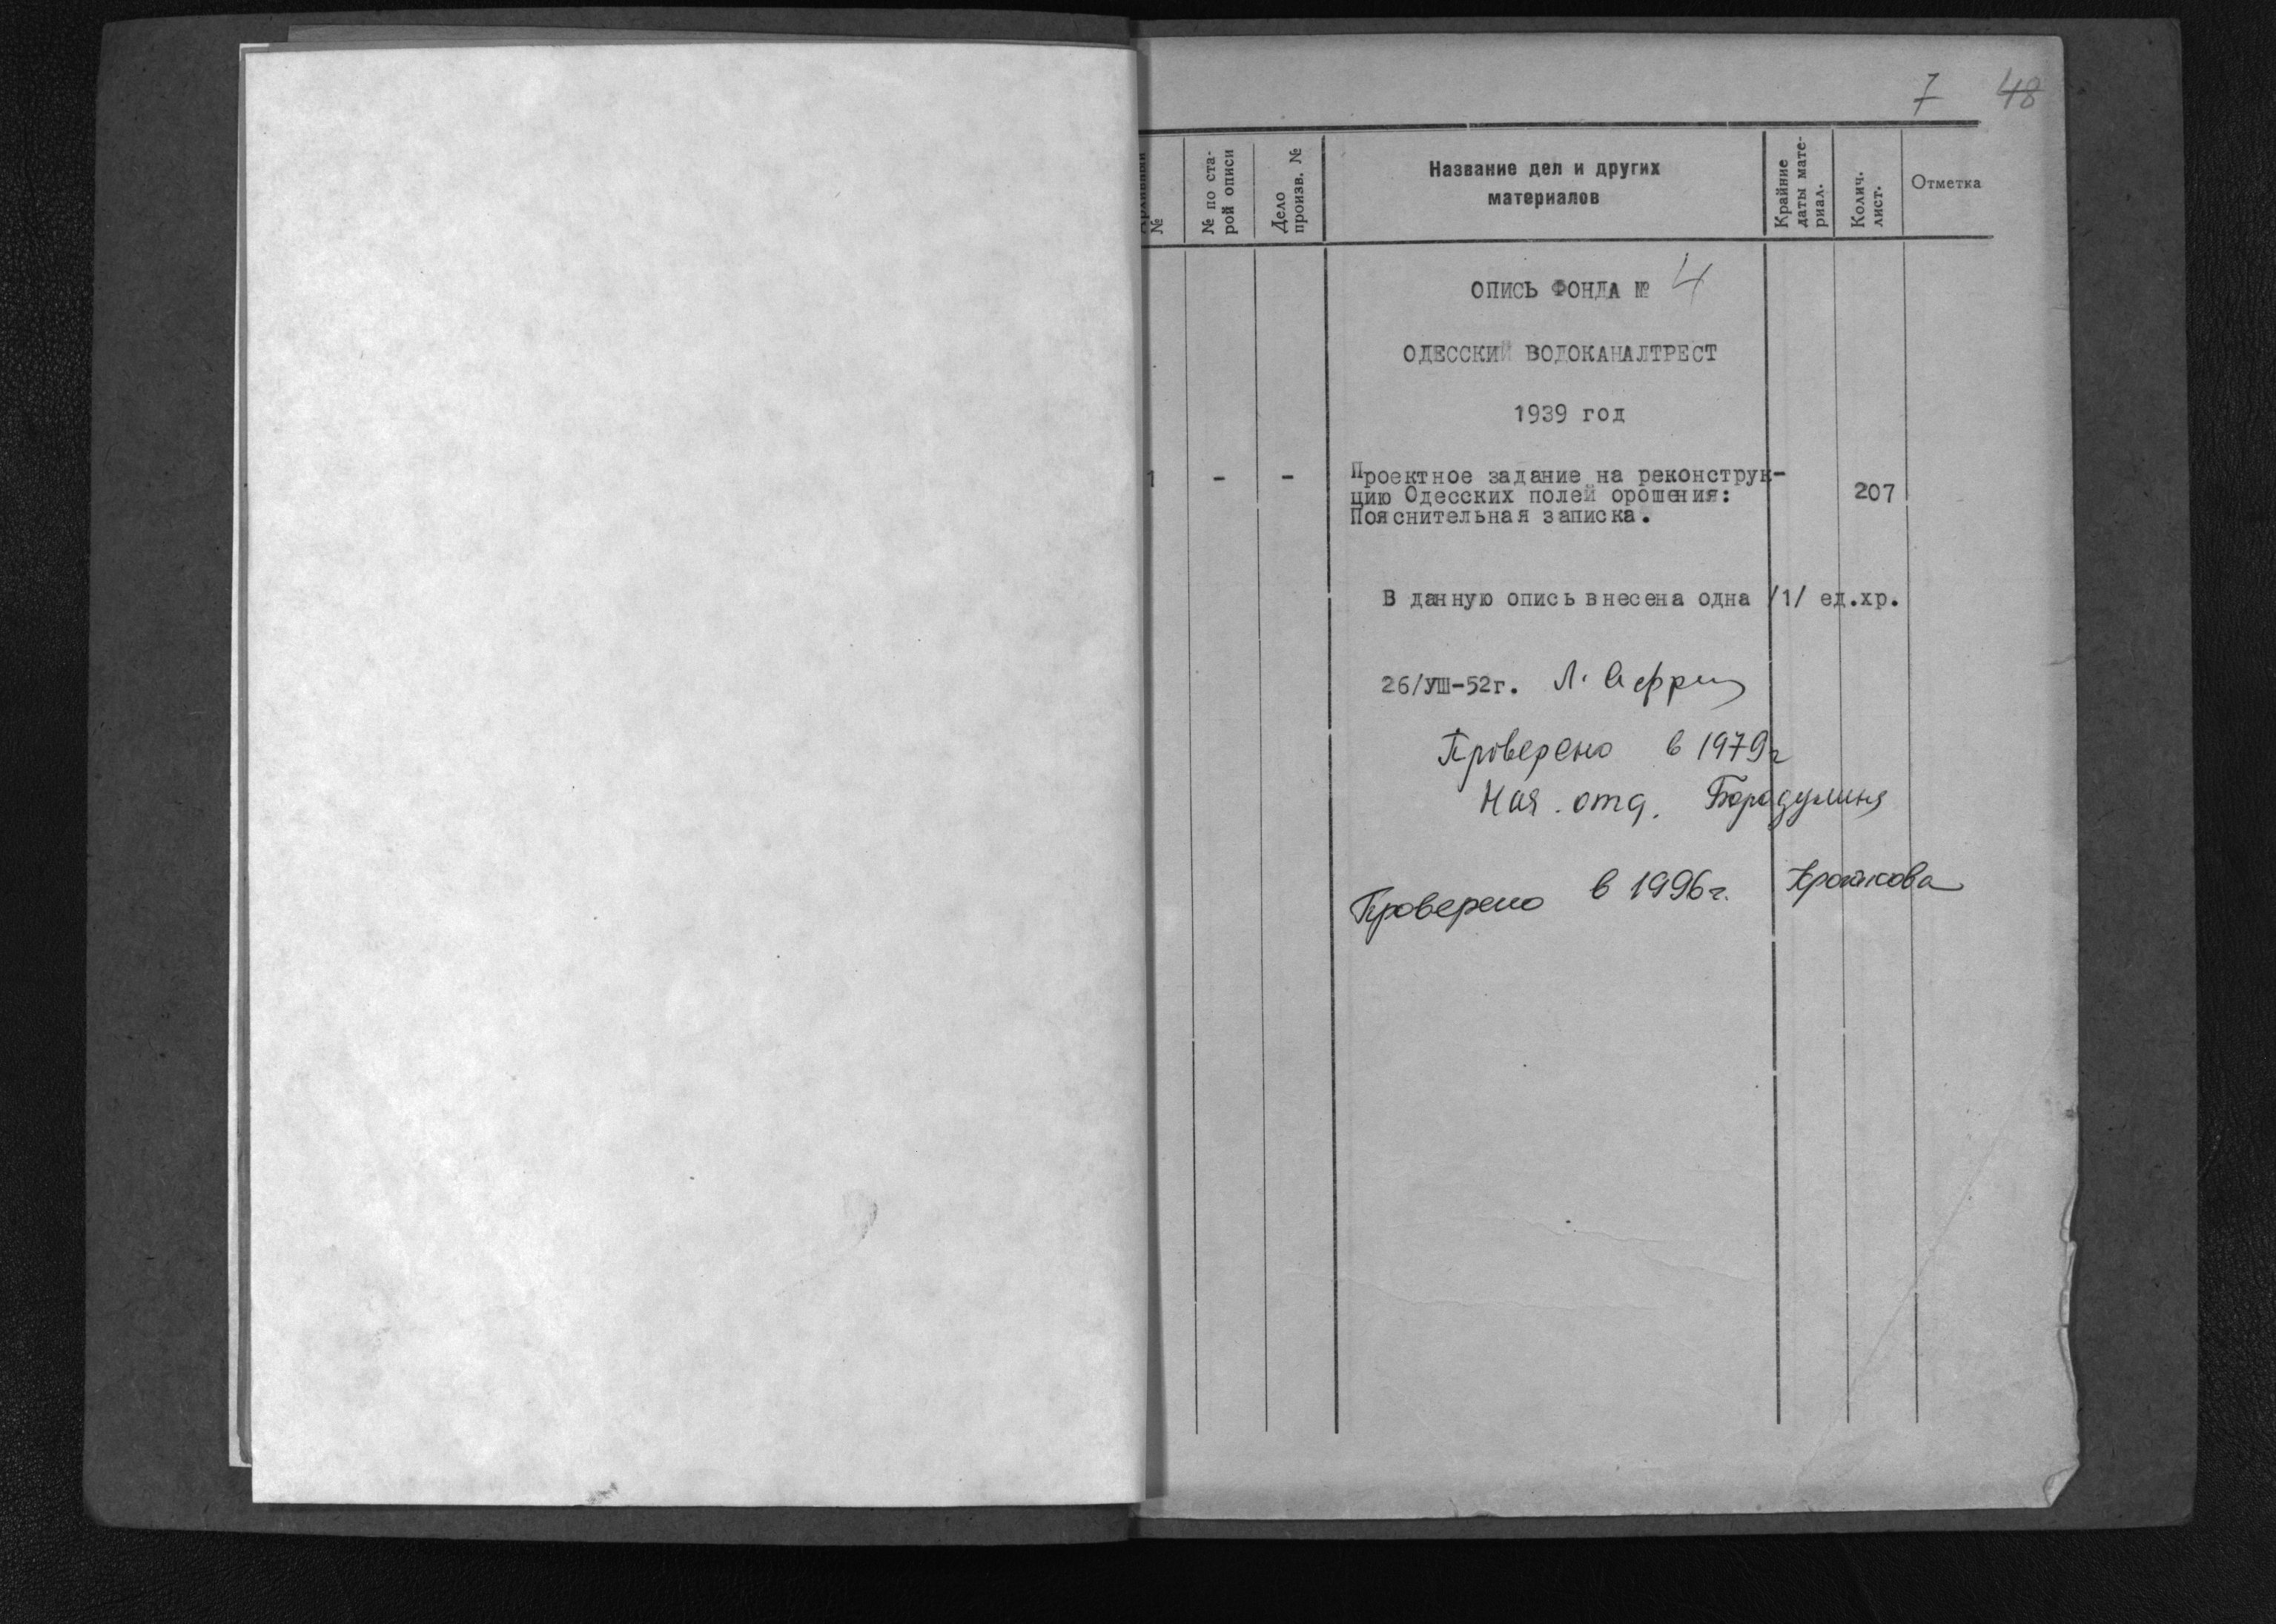 7 48
№
№ по ста-
рой описи
Дело
произв. №
Название дел и других
материалов
Крайние
даты мате-
риал.
Колич.
лист.
Отметка
ОПИСЬ ФОНДА № 4
ОДЕССКИЙ ВОДОКАНАЛТРЕСТ
1939 год
1 - - Проектное задание на реконструк-
цию Одесских полей орошения: 207
Пояснительная записка.
В данную опись внесена одна /1/ ед.хр.
26/УШ-52г. Л.
Проверено в 1979г
Нач. отд. Бородулина
Проверено в 1996г.